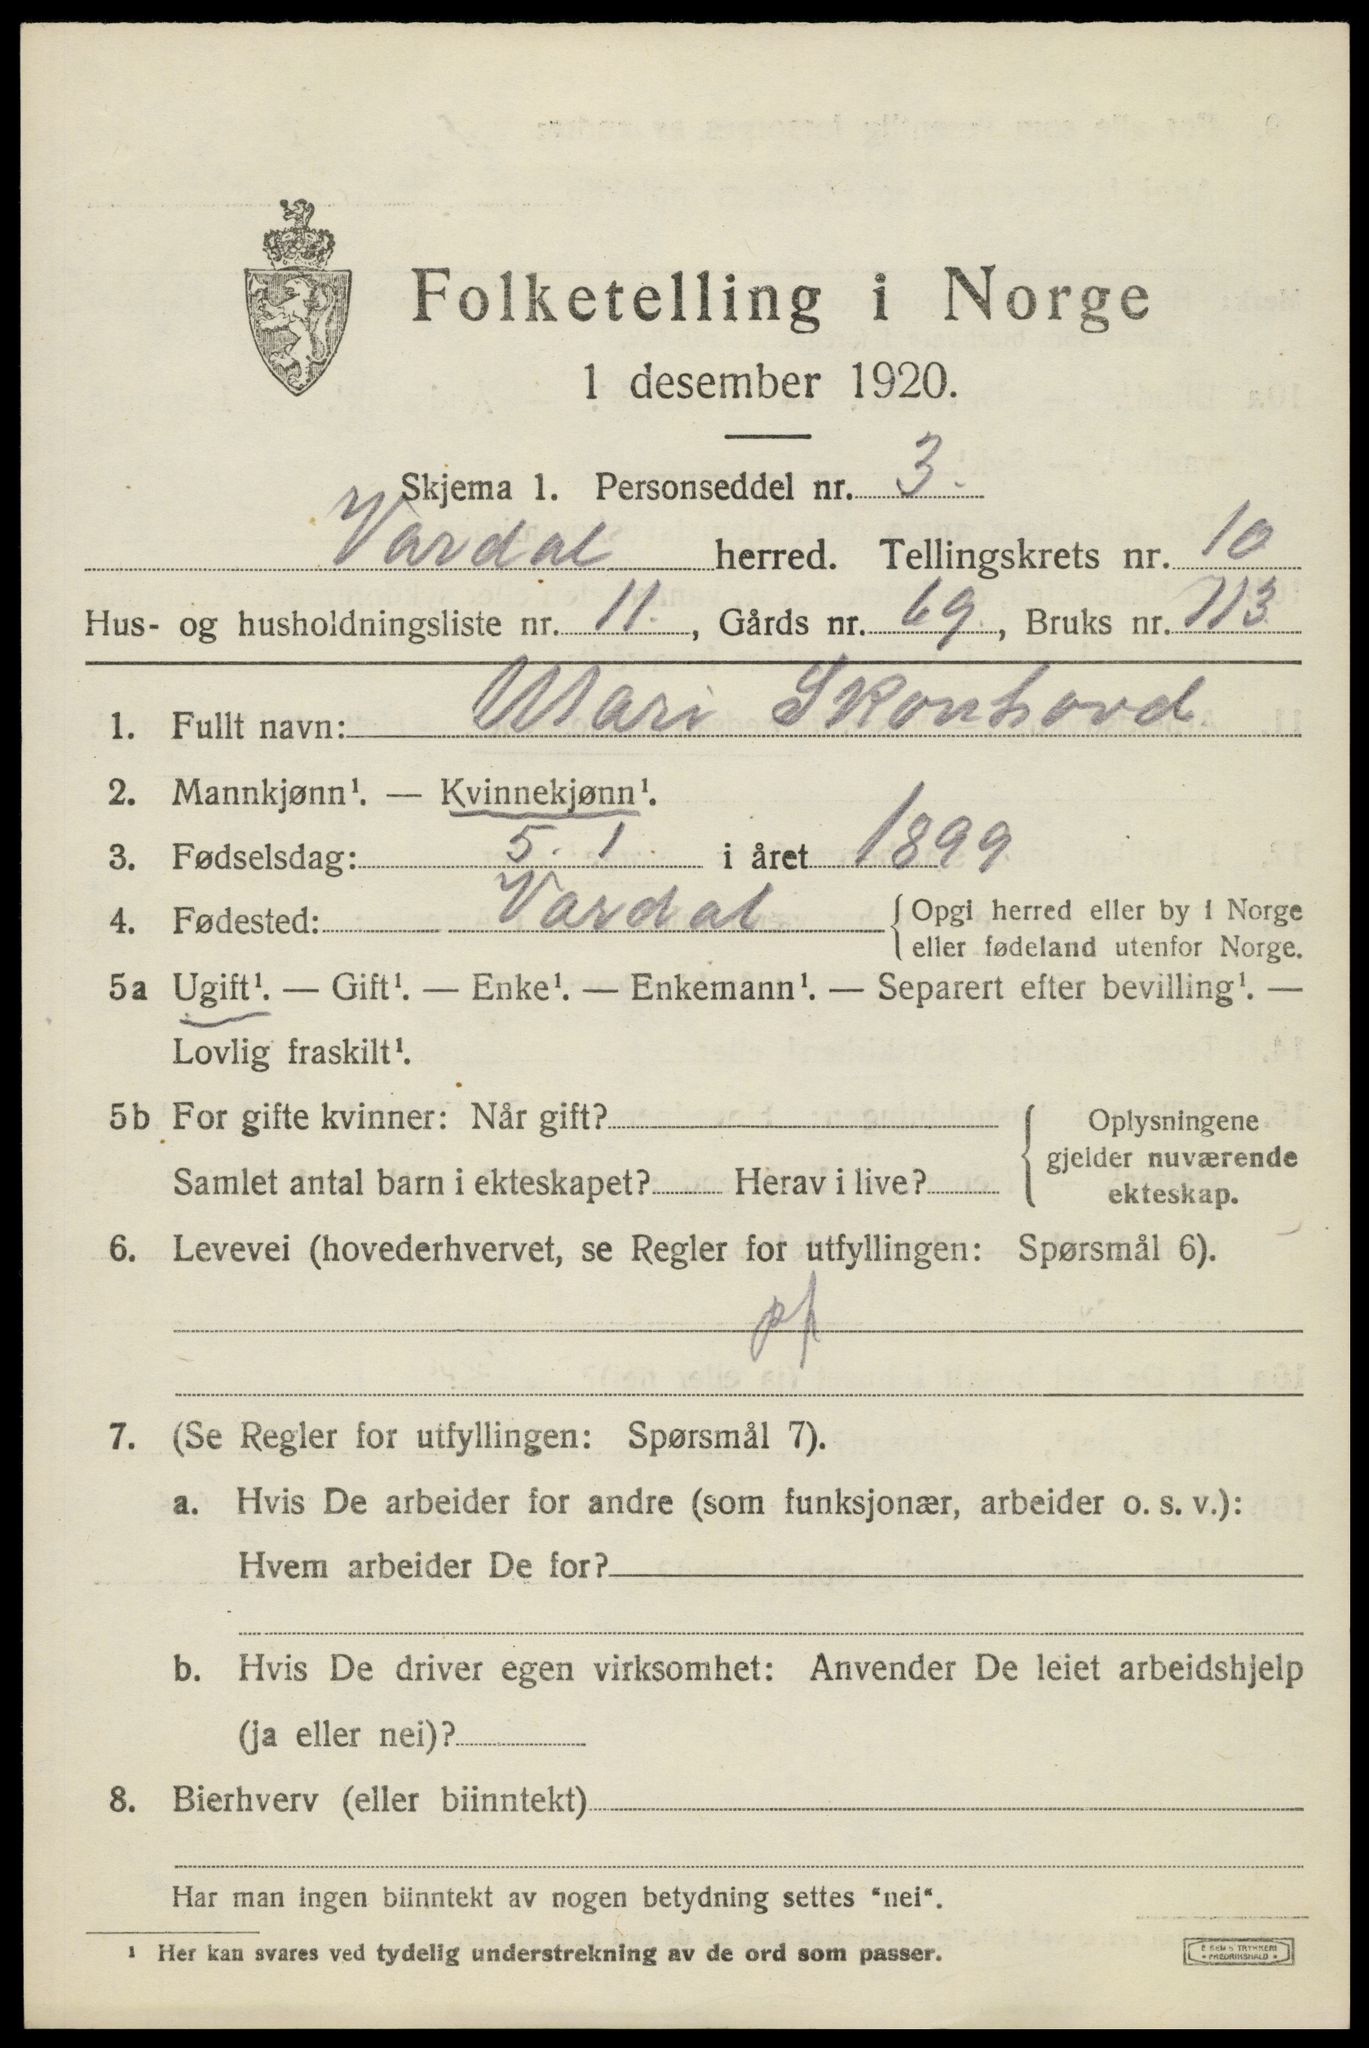 Folketelling i Norge
1 desember 1920.
Skjema 1. Personseddel nr. 3.
Vardal herred. Tellingskrets nr. 10
Hus- og husholdningsliste nr. 11., Gårds nr. 69., Bruks nr. 113
1. Fullt navn: Mari Skonhovd
2. Mannkjønn¹. — Kvinnekjønn¹.
3. Fødselsdag: 5. 1 i året 1899
4. Fødested: Vardal {Opgi herred eller by i Norge
eller fødeland utenfor Norge.
5a Ugift¹. — Gift¹. — Enke¹. — Enkemann¹. — Separert efter bevilling¹. —
Lovlig fraskilt¹.
5b For gifte kvinner: Når gift? { Oplysningene
gjelder nuværende
Samlet antal barn i ekteskapet? Herav i live? ekteskap.
6. Levevei (hovederhvervet, se Regler for utfyllingen: Spørsmål 6).
pf
7. (Se Regler for utfyllingen: Spørsmål 7).
a. Hvis De arbeider for andre (som funksjonær, arbeider o. s. v.):
Hvem arbeider De for?
b. Hvis De driver egen virksomhet: Anvender De leiet arbeidshjelp
(ja eller nei)?
8. Bierhverv (eller biinntekt)
Har man ingen biinntekt av nogen betydning settes "nei".
¹ Her kan svares ved tydelig understrekning av de ord som passer.
TRYKKERI
• FREDRIKSHALD •